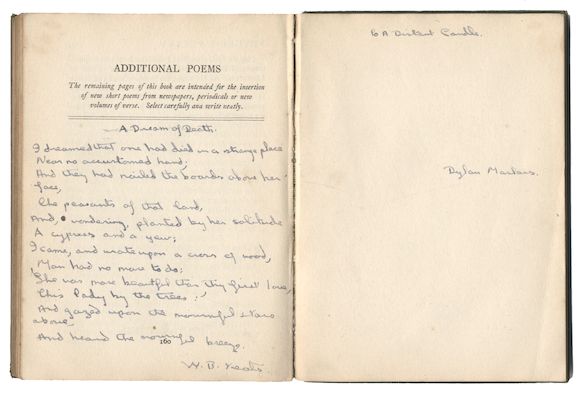 ADDITIONAL POEMS
The remaining pages of this book are intended for the insertion
of new short poems from newspapers, periodicals or new
volumes of verse. Select carefully and write neatly.
A Dream of Death.
I dreamed that one had died in a strange place
Near no accustomed hand;
And they had nailed the boards above her
face,
The peasants of that land,
And, wondering, planted by her solitude
A cypress and a yew;
I came, and wrote upon a cross of wood,
Man had no more to do:
'She was more beautiful than thy first love,
This lady by the trees:'
And gazed upon the mournful stars
above,
And heard the mournful breeze.
160
W. B. Yeats.
6 A Distant Candle.
Dylan